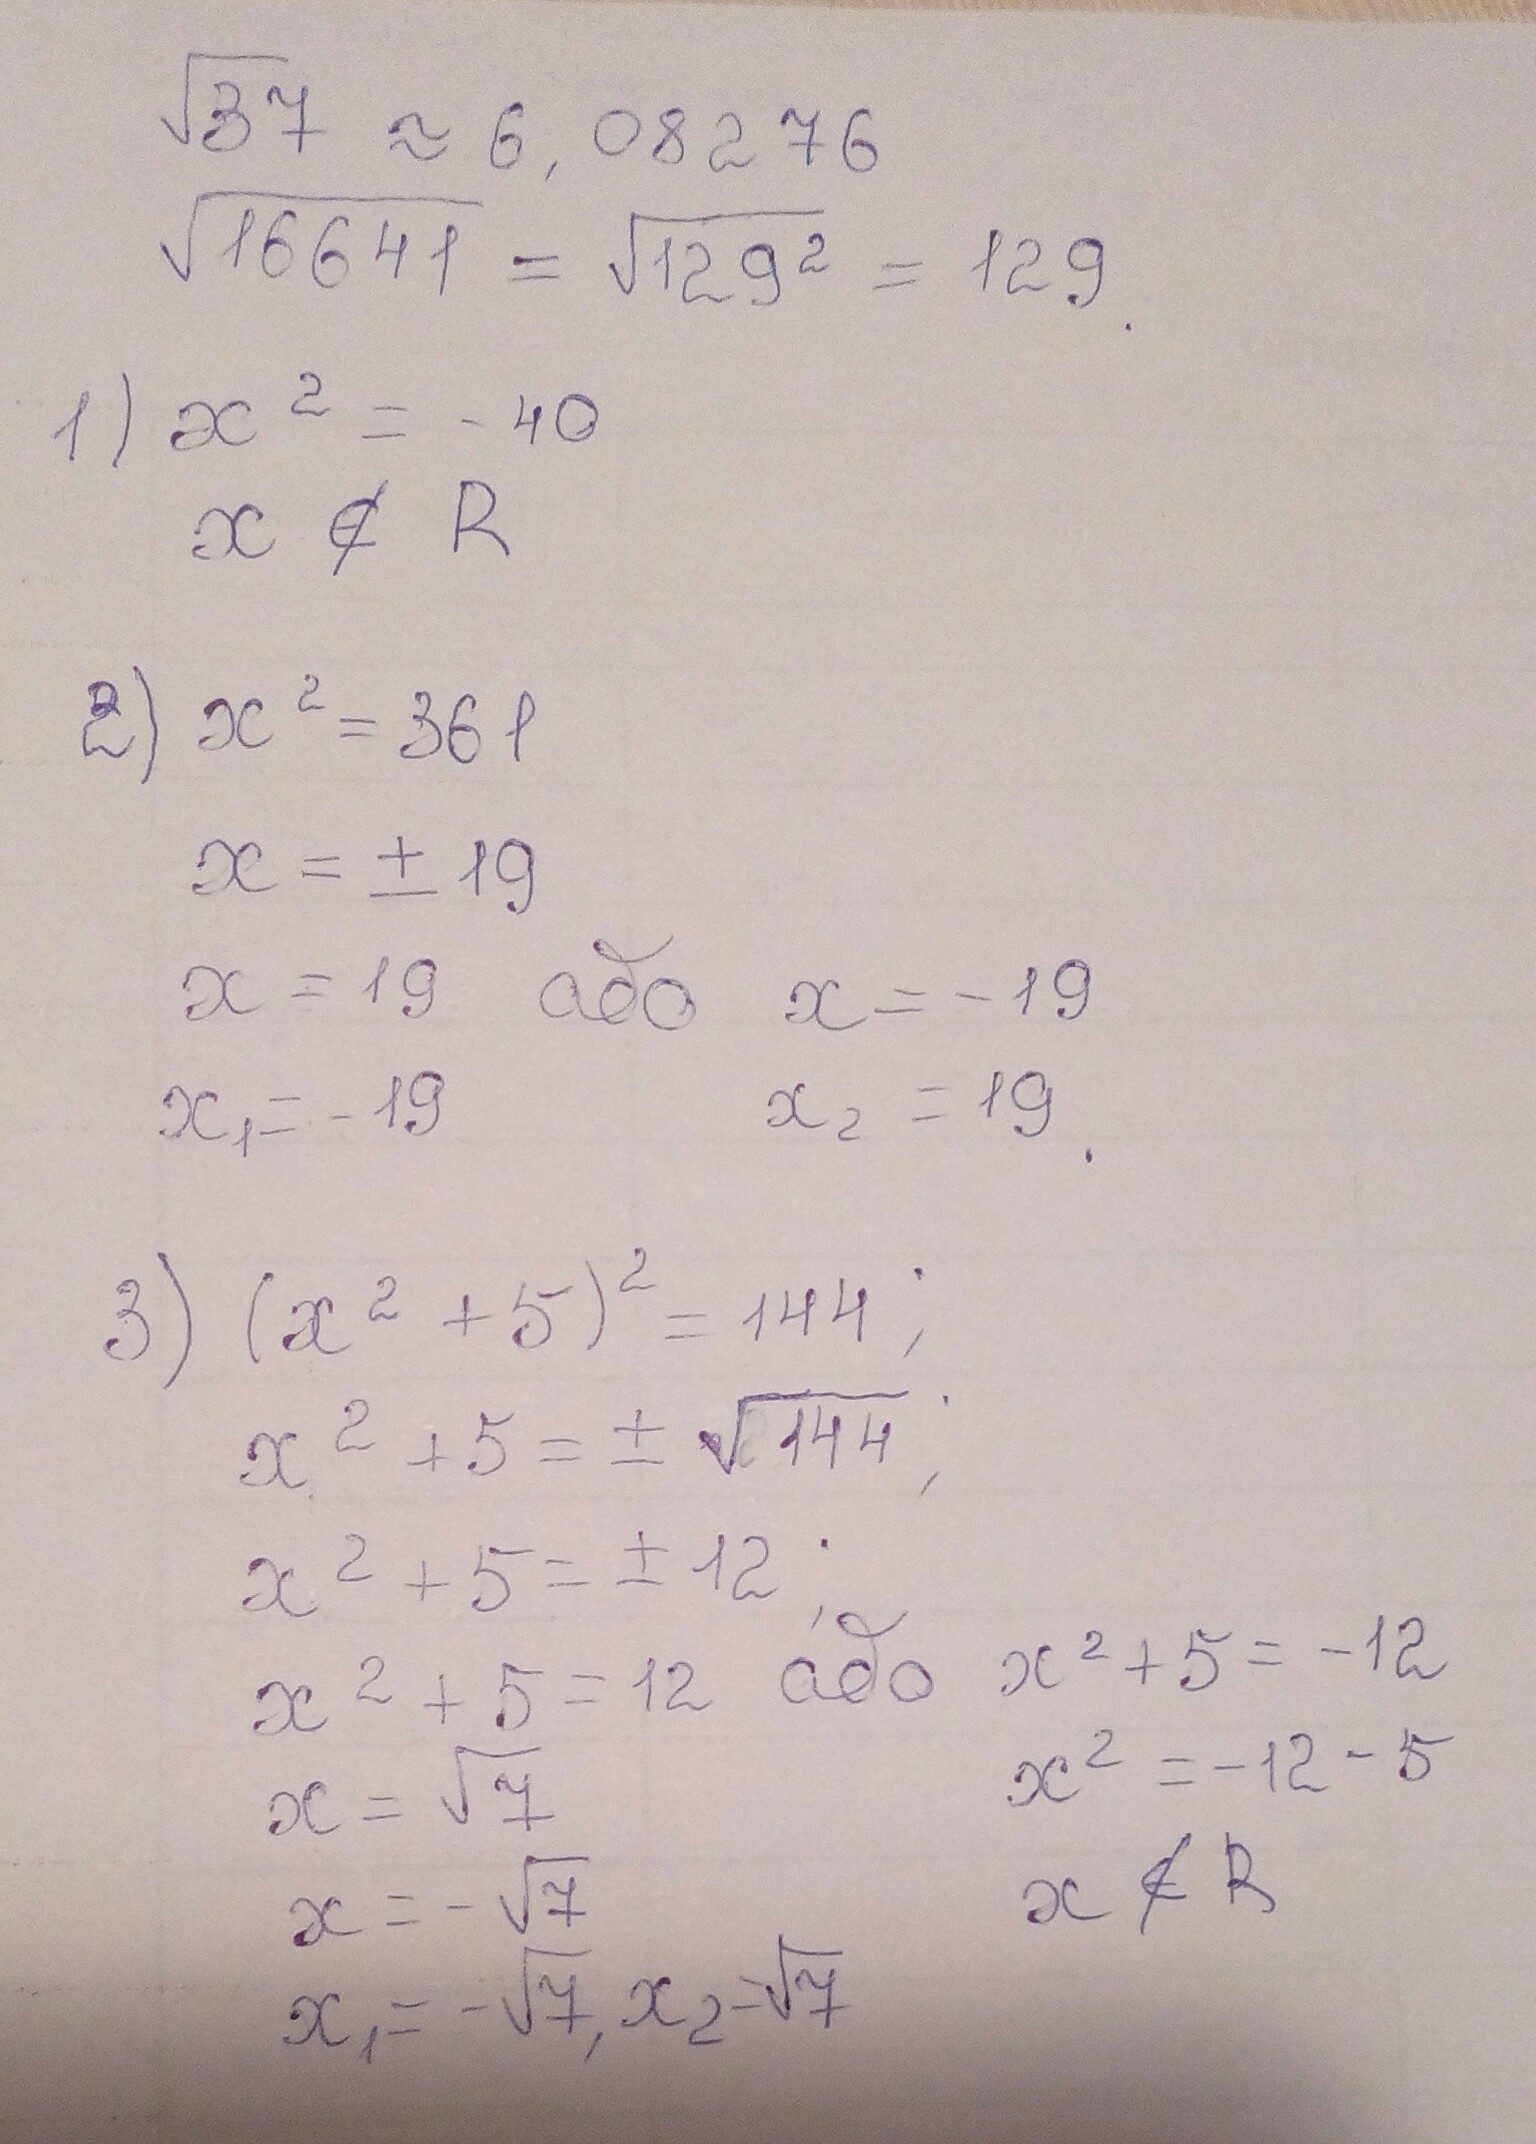 √37 ≈ 6,08276
√16641 = √129² = 129.
1) x² = -40
x ∉ R
2) x² = 361
x = ± 19
x = 19 або x = -19
x₁ = -19 x₂ = 19.
3) (x² + 5)² = 144;
x² + 5 = ± √144;
x² + 5 = ± 12;
x² + 5 = 12 або x² + 5 = -12
x = √7 x² = -12 - 5
x = -√7 x ∉ R
x₁ = -√7, x₂ = √7